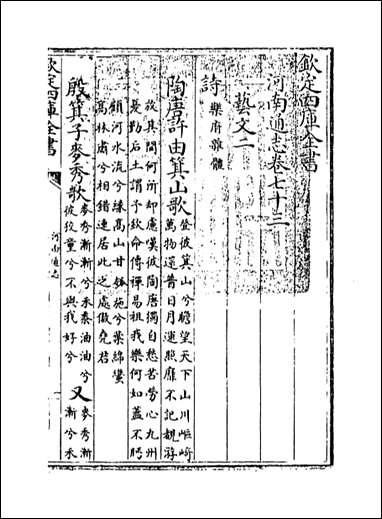 欽定四庫全書
河南通志卷七十三
藝文二
詩 樂府雜體
陶唐許由箕山歌 登彼箕山兮瞻望天下山川嶇崎
萬物還普日月運照靡不記覩游
放其間何所却慮嘆彼陶唐獨自愁苦勞心九州
憂勤后土謂予欽命傳禪易祖我樂何如蓋不盼
顧河水流兮緣高山甘瓜施兮葉綿蠻
高林肅兮相錯連居此之處傲堯君
殷箕子麥秀歌 麥秀漸漸兮禾黍油油兮
彼狡童兮不與我好兮
又 麥秀漸
漸兮禾
欽定四庫全書
河南通志